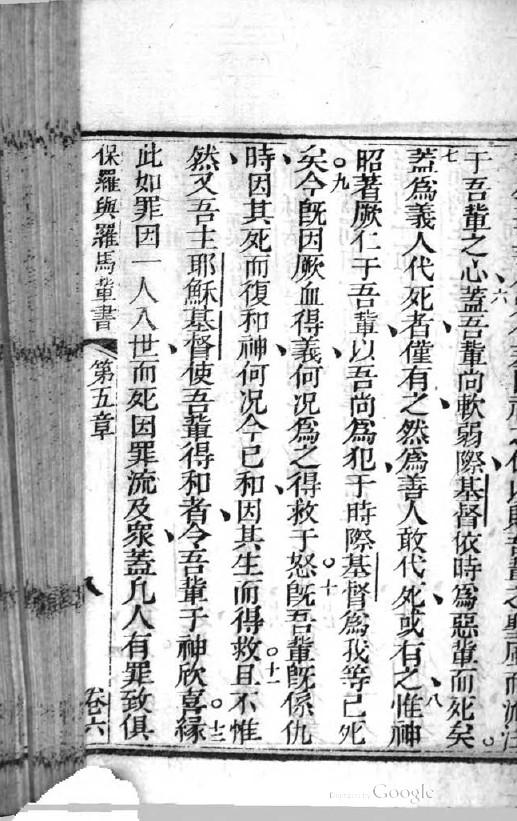 于吾輩之心蓋吾輩尚軟弱際基督依時為惡輩而死矣。
七蓋為義人代死者僅有之然為善人敢代死或有之八惟神
昭著厥仁于吾輩以吾尚為犯于時際基督為我等已死
矣。九今既因厥血得義何況為之得救于怒。十既吾輩既係仇
時因其死而復和神何況今已和因其生而得救。十一且不惟
然又吾主耶穌基督使吾輩得和者令吾輩于神欣喜。十二緣
此如罪因一人入世而死因罪流及眾蓋凡人有罪致俱
保羅與羅馬輩書 第五章 卷六
Digitized by Google